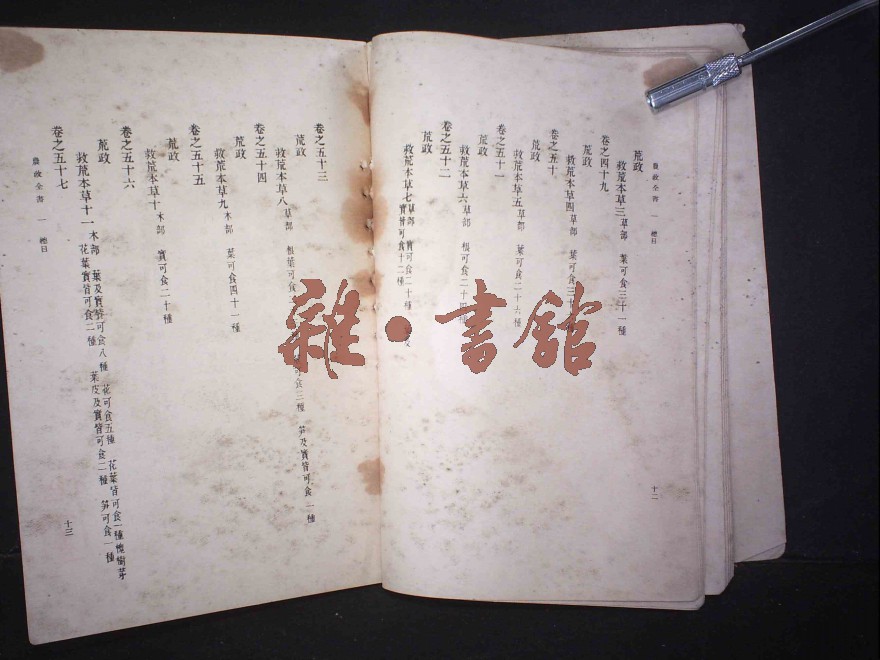 農政全書 一 總目 十二
荒政
救荒本草三 草部 葉可食三十一種
卷之四十九
荒政
救荒本草四 草部 葉可食三十
卷之五十
荒政
救荒本草五 草部 葉可食二十六種
卷之五十一
荒政
救荒本草六 草部 根可食二十四種
卷之五十二
荒政
救荒本草七 草部 實可食二十種
實皆可食十二種
卷之五十三
荒政
救荒本草八 草部 根葉可食 可食二種 笋及實皆可食一種
卷之五十四
荒政
救荒本草九 木部 葉可食四十一種
卷之五十五
荒政
救荒本草十 木部 實可食二十種
卷之五十六
荒政
救荒本草十一 木部 葉及實皆可食八種 花可食五種 花葉皆可食一種 懷樹芽
花葉實皆可食二種 葉皮及實皆可食二種 笋可食一種
卷之五十七
農政全書 一 總目 十三
雜·書館